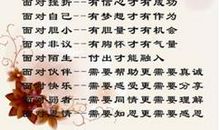 面对挫折--有信心才有成功
面对自己--有梦想才有作为
面对胆小--有胆量才有机会
面对非议--有胸怀才有气量
面对陌生--付出才能融入
面对伙伴--需要帮助更需要真诚
面对快乐--需要感受更需要分享
面对弱者--需要同情更需要理解
面对恩情--需要知恩更需要感恩